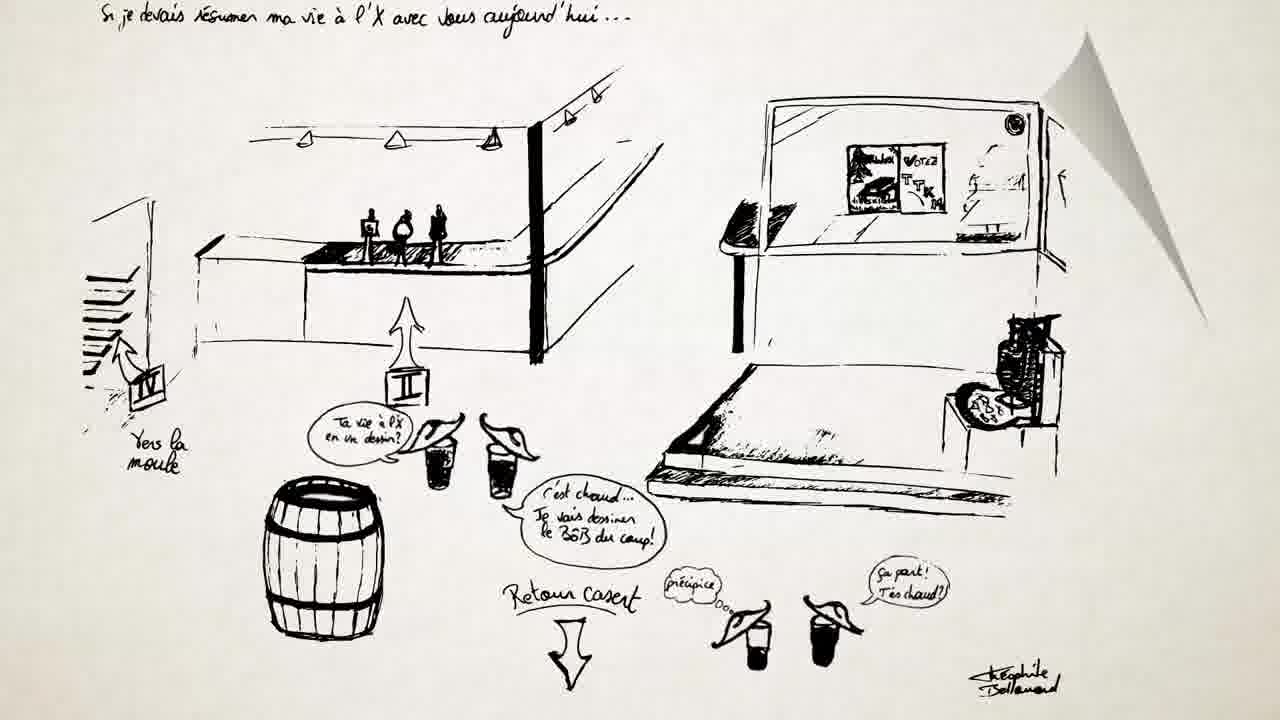 Si je devais résumer ma vie à l'X avec vous aujourd'hui...
VOTEZ
TTK
IV
Vers la
moule
II
Ta vie à l'X
en un dessin?
C'est chaud...
Je vais dessiner
le BôB du coup!
Retour casert
précipice
ça part!
T'es chaud?
Théophile